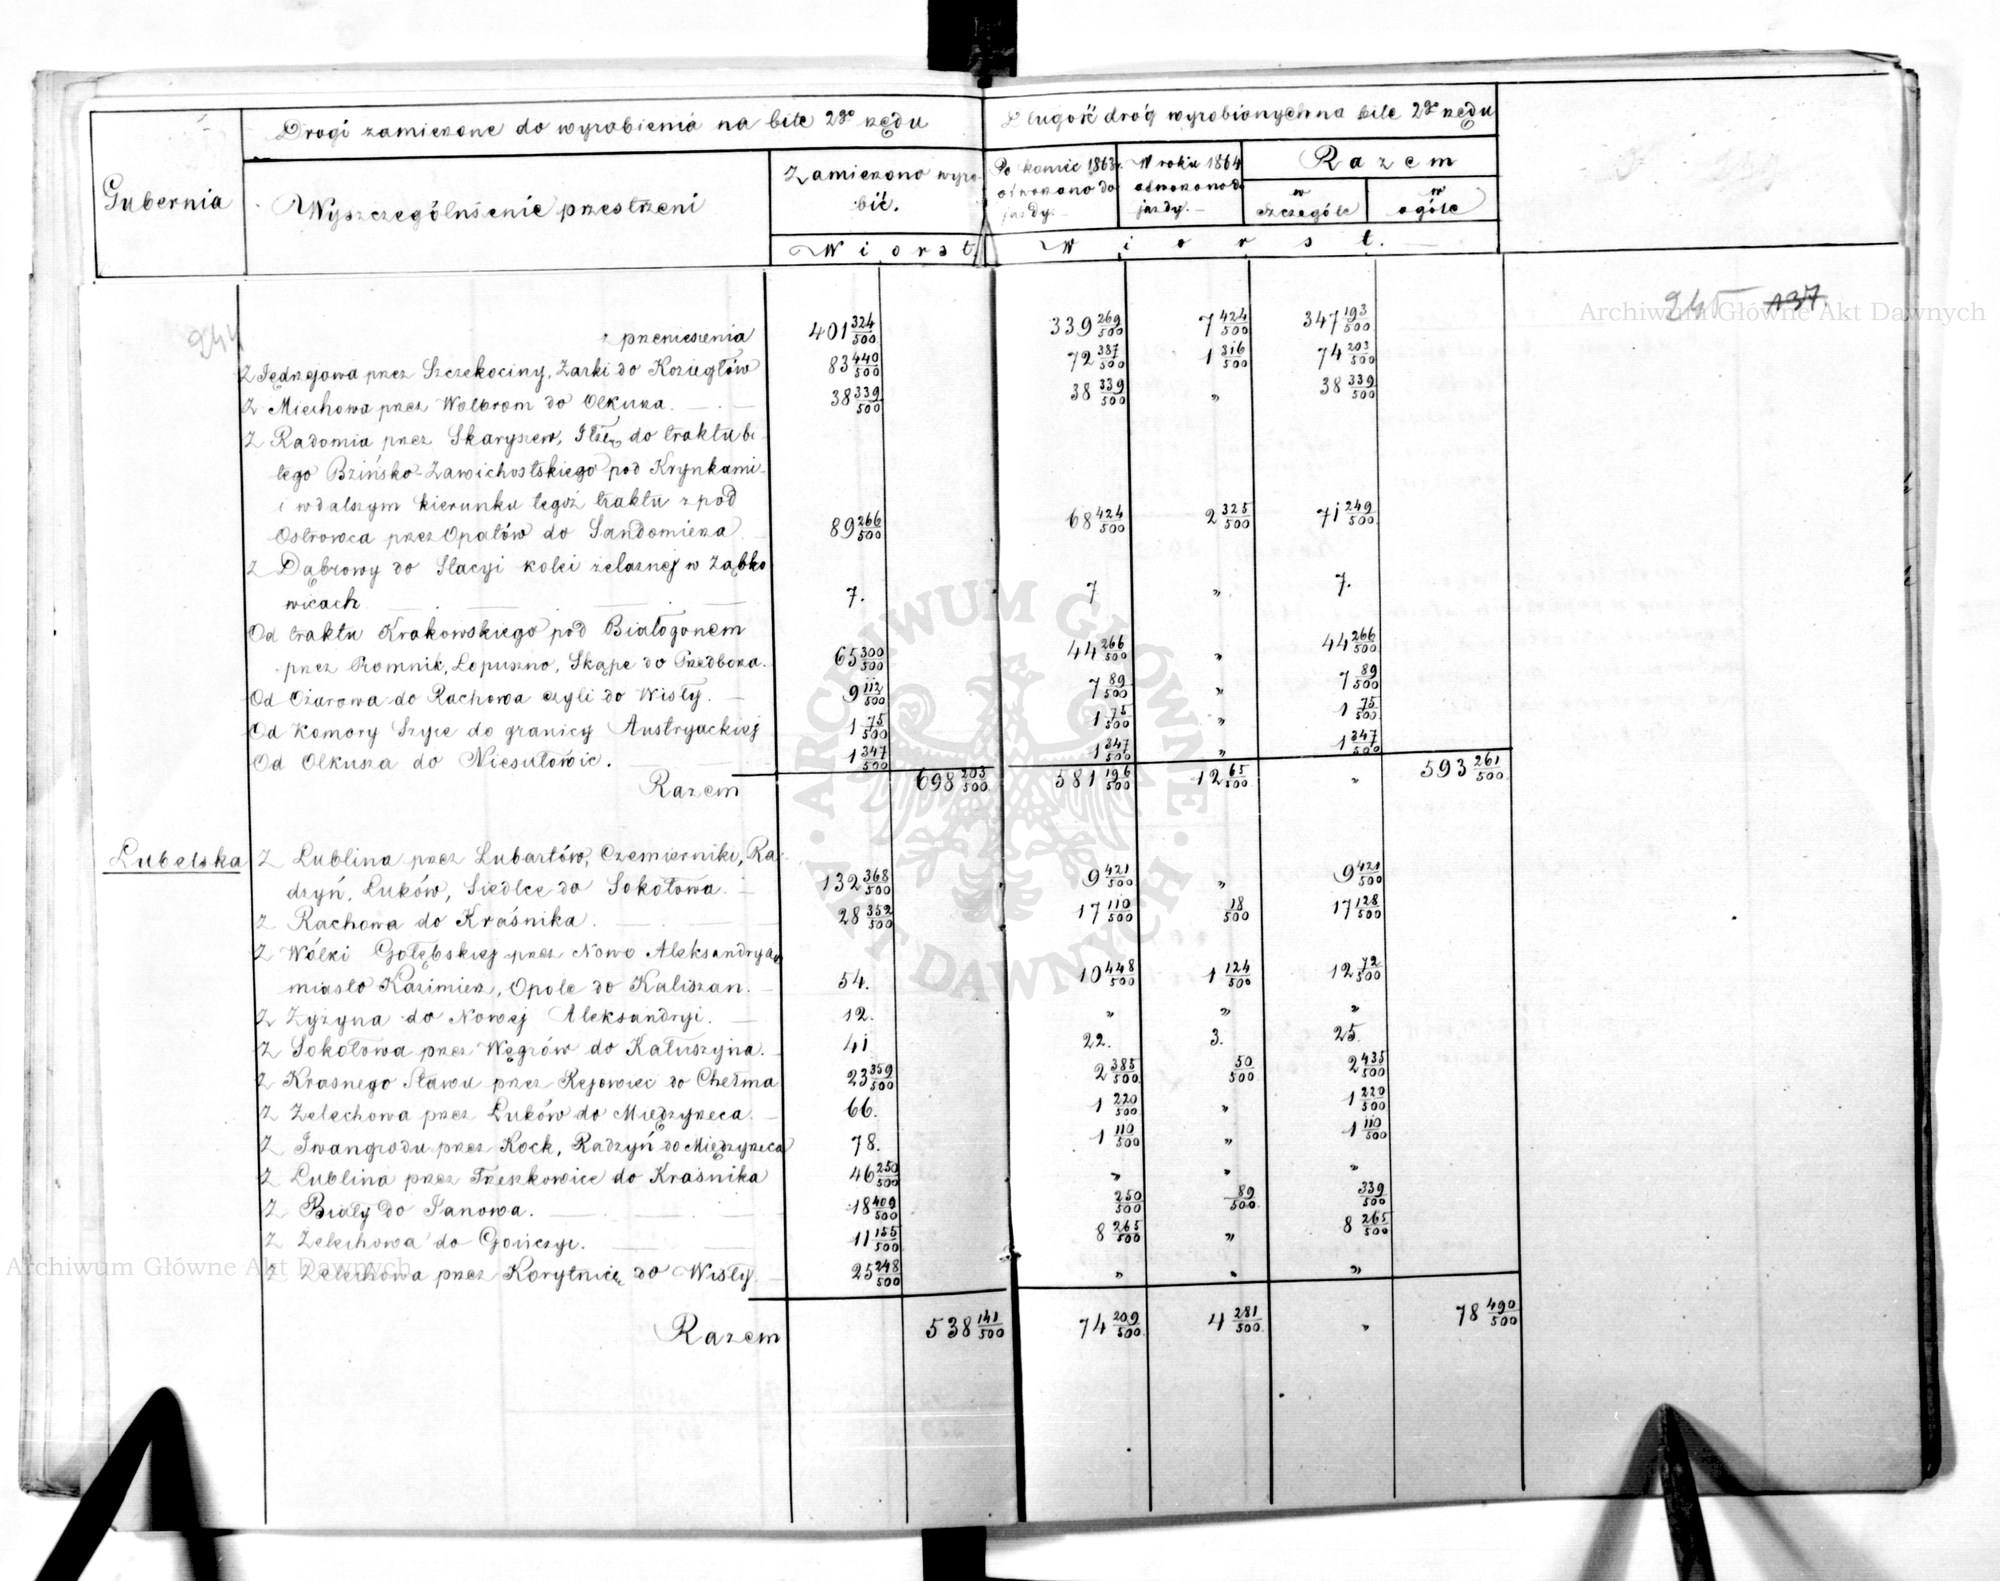 Drogi zamierzone do wyrobienia na bite 2go rzędu
Długość dróg wyrobionych na bite 2go rzędu
Gubernia
Wyszczególnienie przestrzeni
Zamierzono wyro-
bić.
Po koniec 1863r.
otworzono do
jazdy.
W roku 1864
otworzono do
jazdy.
Razem
w szczególe
w ogóle
Wiorst.
Wiorst.
244
245 137
z przeniesienia 401 324/500 339 269/500 7 424/500 347 193/500
Z Jędrzejowa przez Szczekociny, Żarki do Koziegłów 83 440/500 72 387/500 1 316/500 74 203/500
Z Miechowa przez Wolbrom do Olkusza. 38 339/500 38 339/500 „ 38 339/500
Z Radomia przez Skaryszew, Iłżę do traktu bi-
tego Bzińsko-Zawichostskiego pod Krynkami
i w dalszym kierunku tegoż traktu z pod
Ostrowca przez Opatów do Sandomierza 89 266/500 68 424/500 2 325/500 71 249/500
Z Dąbrowy do Stacyi kolei żelaznej w Ząbko-
wicach 7. 7 „ 7.
Od traktu Krakowskiego pod Białogonem
przez Promnik, Łopuszno, Skąpe do Przedborza. 65 300/500 44 266/500 „ 44 266/500
Od Ożarowa do Rachowa czyli do Wisły. 9 112/500 7 89/500 „ 7 89/500
Od Komory Szyce do granicy Austryackiej 1 75/500 1 75/500 „ 1 75/500
Od Olkusza do Niesułowic. 1 347/500 1 347/500 „ 1 347/500
Razem 698 203/500 581 196/500 12 65/500 „ 593 261/500
Lubelska
Z Lublina przez Lubartów, Czemierniki, Ra-
dzyń, Łuków, Siedlce do Sokołowa. 132 368/500 9 421/500 „ 9 421/500
Z Rachowa do Kraśnika. 28 352/500 17 110/500 18/500 17 128/500
Z Wólki Gołębskiej przez Nowo Aleksandryą,
miasto Kazimierz, Opole do Kaliszan. 54. 10 448/500 1 124/500 12 72/500
Z Żyżyna do Nowej Aleksandryi. 12. „ „ „
Z Sokołowa przez Węgrów do Kałuszyna. 41. 22. 3. 25.
Z Krasnego Stawu przez Rejowiec do Chełma 23 359/500 2 385/500 50/500 2 435/500
Z Żelechowa przez Łuków do Międzyrzeca. 66. 1 220/500 „ 1 220/500
Z Iwangrodu przez Kock, Radzyń do Międzyrzeca 78. 1 110/500 „ 1 110/500
Z Lublina przez Treszkowice do Kraśnika 46 250/500 „ „ „
Z Biały do Janowa. 18 409/500 250/500 89/500 339/500
Z Żelechowa do Gończyc. 11 155/500 8 265/500 „ 8 265/500
Z Żelechowa przez Korytnicę do Wisły. 25 248/500 „ „ „
Razem 538 141/500 74 209/500 4 281/500 „ 78 490/500
Archiwum Główne Akt Dawnych
Archiwum Główne Akt Dawnych
ARCHIWUM GŁÓWNE AKT DAWNYCH